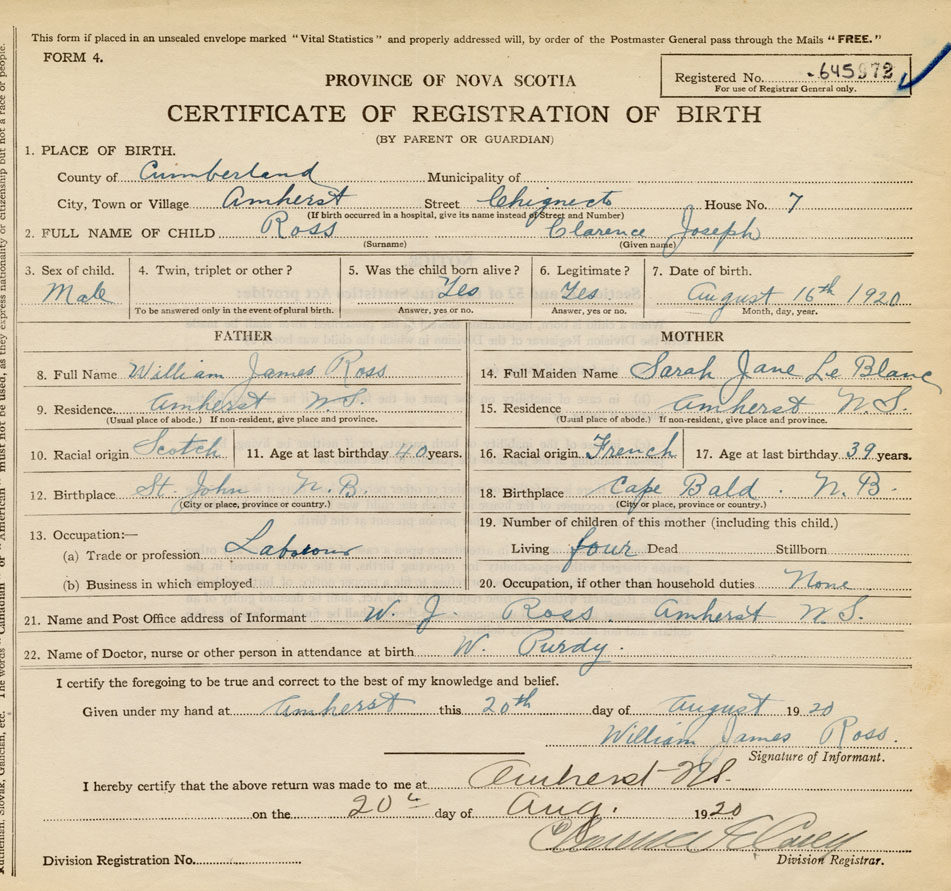 This form if placed in an unsealed envelope marked "Vital Statistics" and properly addressed will, by order of the Postmaster General pass through the Mails "FREE."
FORM 4.
PROVINCE OF NOVA SCOTIA
Registered No. 645972
For use of Registrar General only.
CERTIFICATE OF REGISTRATION OF BIRTH
(BY PARENT OR GUARDIAN)
1. PLACE OF BIRTH.
County of Cumberland Municipality of
City, Town or Village Amherst Street Chignecto House No. 7
(If birth occurred in a hospital, give its name instead of Street and Number)
2. FULL NAME OF CHILD Ross Clarence Joseph
(Surname) (Given name)
3. Sex of child. 4. Twin, triplet or other? 5. Was the child born alive? 6. Legitimate? 7. Date of birth.
Male Yes Yes August 16th 1920
To be answered only in the event of plural birth. Answer, yes or no. Answer, yes or no. Month, day, year.
FATHER MOTHER
8. Full Name William James Ross 14. Full Maiden Name Sarah Jane Le Blanc
9. Residence. Amherst N.S. 15. Residence Amherst N.S.
(Usual place of abode.) If non-resident, give place and province. (Usual place of abode.) If non-resident, give place and province.
10. Racial origin Scotch 11. Age at last birthday 40 years. 16. Racial origin French 17. Age at last birthday 39 years.
12. Birthplace St. John N.B. 18. Birthplace Cape Bald. N.B.
(City or place, province or country.) (City or place, province or country.)
13. Occupation:— 19. Number of children of this mother (including this child.)
(a) Trade or profession Labourer Living four Dead Stillborn
(b) Business in which employed 20. Occupation, if other than household duties None
21. Name and Post Office address of Informant W. J. Ross. Amherst N.S.
22. Name of Doctor, nurse or other person in attendance at birth W. Purdy.
I certify the foregoing to be true and correct to the best of my knowledge and belief.
Given under my hand at Amherst this 20th day of August 1920
William James Ross.
Signature of Informant.
I hereby certify that the above return was made to me at Amherst N.S.
on the 20th day of Aug. 1920
Division Registration No. Division Registrar.